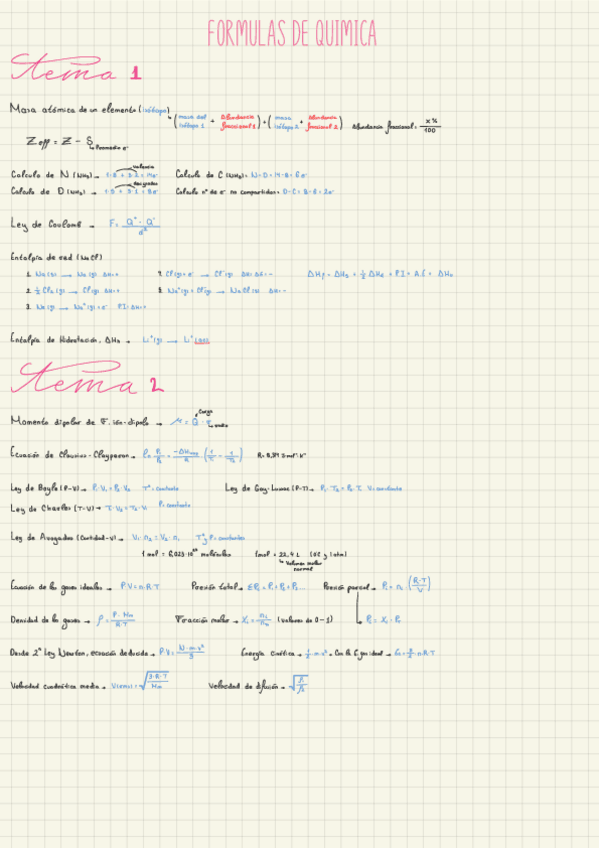 FORMULAS DE QUIMICA
tema 1
Masa atómica de un elemento (isótopo) → (masa del isótopo 1 + Abundancia fraccional 1) + (masa isótopo 2 + Abundancia fraccional 2) Abundancia fraccional = x% / 100
Zeff = Z - S → Promedio e-
Calculo de N (NH3) → 1·8 + 3·2 = 14e- valencia Calculo de C (NH3) = N - D = 14 - 8 = 6e-
Calculo de D (NH3) → 1·5 + 3·1 = 8e- Calculo nº de e- no compartidos = D - C = 8 - 6 = 2e-
Ley de Coulomb → F = Q+ · Q- / d²
Entalpía de red (NaCl)
1. Na (s) → Na (g) ΔH = + 4. Cl (g) + e- → Cl- (g) ΔH = -
2. ½ Cl2 (g) → Cl (g) ΔH = + 5. Na+ (g) + Cl- (g) → NaCl (s) ΔH = -
3. Na (g) → Na+ (g) + e- P.I = ΔH = +
Entalpía de Hidratación, ΔHh → Li+ (g) → Li+ (aq)
tema 2
Momento dipolar de F. ión-dipolo → μ = Q · r Carga radio
Ecuación de Clausius-Clayperon → ln P1/P2 = -ΔHvap / R (1/T - 1/T2)
Ley de Boyle (P-V) → P1·V1 = P2·V2 Tª = constante Ley de Gay-Lussac (P-T) → P1·T2 = P2·T1 V = constante
Ley de Charles (T-V) → T1·V2 = T2·V1 P = constante
Ley de Avogadro (Cantidad-V) → V1·n2 = V2·n1 Tª y P = constantes
1 mol = 6,023·10²³ moléculas 1mol = 22,4 L (0ºC y 1 atm)
Volumen molar normal
Ecuación de los gases ideales → P·V = n·R·T Presión total → ΣPi = P1 + P2 + P3... Presión parcial → Pi = ni · (R·T / V)
Densidad de los gases → ρ = P·Mm / R·T Fracción molar → Xi = ni / nn (valores de 0-1) Pi = Xi · PT
Desde 2ª Ley Newton, ecuación deducida → P·V = N·m·v² / 3 Energía cinética → ½·m·v² → Con la E gas ideal → Ec = 3/2 · n·R·T
Velocidad cuadrática media → V(rms) = √(3·R·T / Mm) Velocidad de difusión →